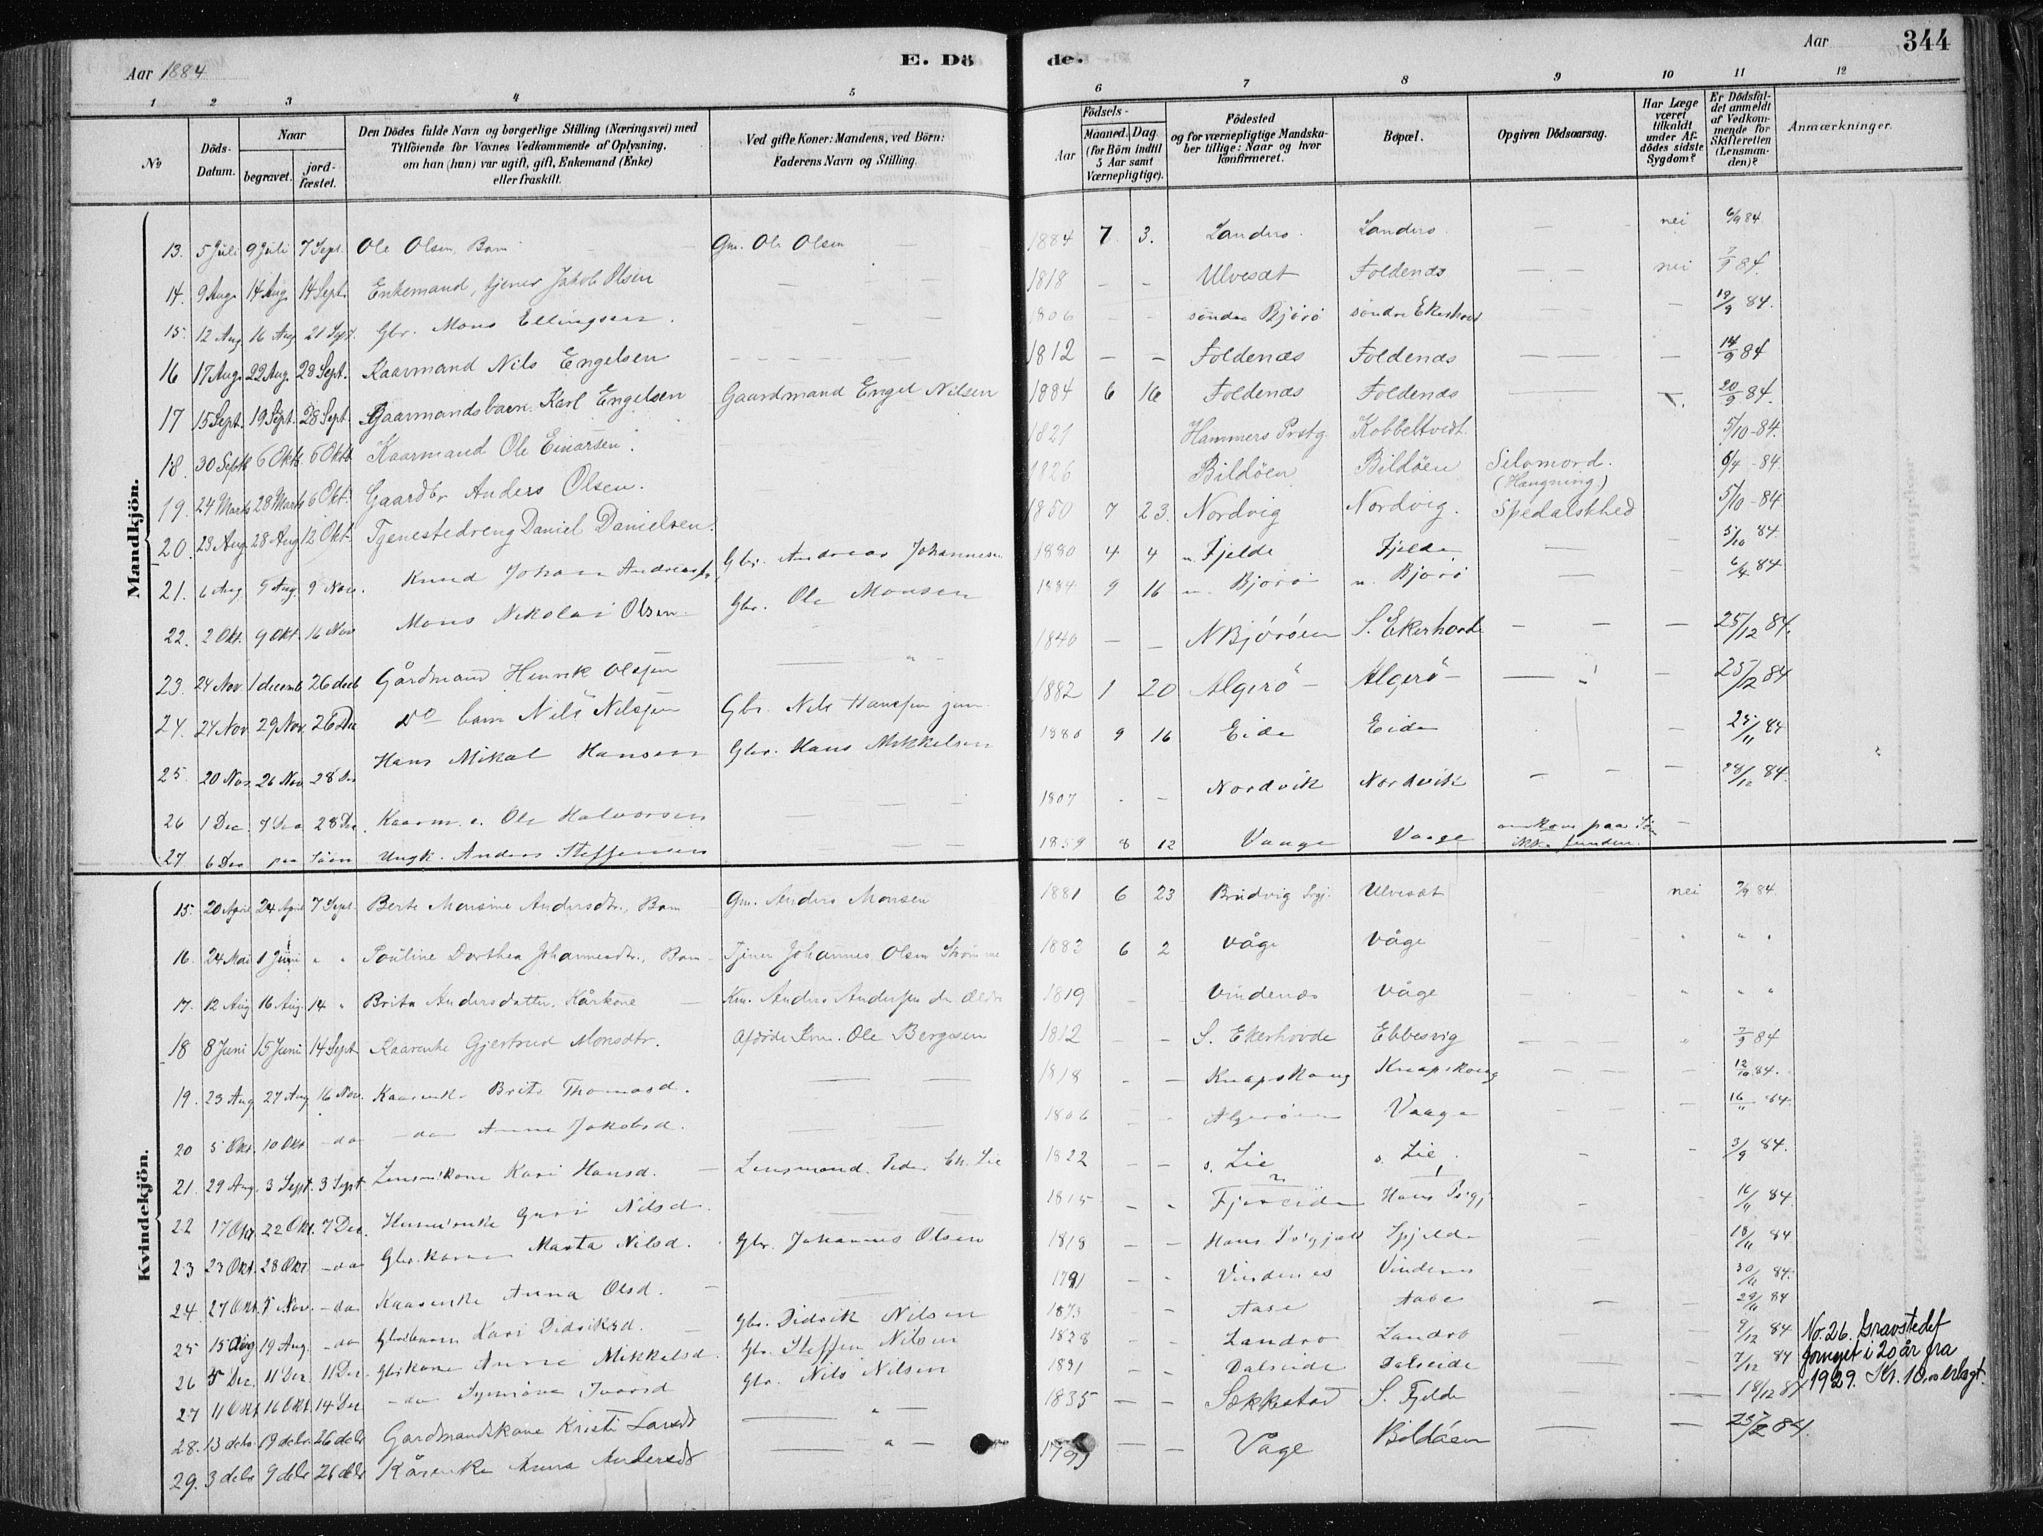 Aar 1884
E. Dö
de.
Aar
344
1 2 3 4 5 6 7 8 9 10 11 12
No
Döds-Datum.
Naar
begravet.
jord-fæstet.
Den Dödes fulde Navn og borgerlige Stilling (Næringsvei) med Tilföiende for Voxnes Vedkommende af Oplysning, om han (han) var ugift, gift, Enkemand (Enke) eller fraskilt.
Ved gifte Koner: Mandens, ved Börn: Faderens Navn og Stilling.
Födsels-
Aar
Maaned. Dag
(for Börn indtil 5 Aar samt Værnepligtige).
Födested og for værnepligtige Mandskaber tillige: Naar og hvor konfirmeret.
Bopæl.
Opgiven Dödsaarsag.
Har Læge været tilkaldt under Afdödes sidste Sygdom?
Er Dödsfaldet anmeldt af Vedkommende for Skifteretten (Lensmanden)?
Anmærkninger.
Mandkjön.
13. 5 Juli 9 Juli 7 Sept. Ole Olsen, Barn Gm. Ole Olsen 1884 7 3. Landero Landero — nei 6/9 84
14. 9 Aug. 14 Aug. 14 Sept. Enkemand, tjener Jakob Olsen — 1818 — — Ulvesæt Foldenæs — nei 7/9 84.
15. 12 Aug 16 Aug 21 Sept. Gbr. Mons Ellingsen. — 1806 — — søndre Bjørø søndre Ekerhovd 19/9 84.
16 17 Aug. 22 Aug. 28 Sept. Kaarmand Nils Engelsen — 1812 — — Foldenæs Foldenæs — — 14/9 84
17 15 Sept. 19 Sept. 28 Sept. Gaarmandsbarn Karl Engelsen Gaardmand Engel Nilsen 1884 6 16 Foldenæs Foldenæs — 20/9 84.
18. 30 Septb 6 Oktb. 6 Oktb Kaarmand Ole Einarsen. 1821 Hammers Prstg. Kobbeltvedt. 5/10-84.
19. 24 Marts 28 Marts 6 Okt. Gaardbr Anders Olsen. 1826 Bildøen Bildøen Selvmord. (Hængning.) 6/4 -84.
20. 23 Aug. 28 Aug 12 Okt. Tjenestedreng Daniel Danielsen. 1850 7 23. Nordvig Nordvig. Spedalskhed 5/10-84
21. 6 Aug 9 Aug. 9 Nov. Knud Johan Andreas Gbr. Andreas Johannesen 1880 4 4 n. Fjelde Fjelde — — 5/10 84.
22. 2 Okt. 9 Okt. 16 Nov Mons Nikolai Olsen Gbr. Ole Monsen 1884 9 16 n. Bjørø n. Bjørø — — 6/4 84
23. 24 Nov. 1 decemb 26 decb Gårdmand Henrik Olsen — 1840 — — N Bjørøen S. Ekerhovde — — — 25/12 84.
24. 24 Nov. 29 Nov. 26 Dec do barn Nils Nilsen Gbr. Nils Hansen jun. 1882 1 20 Algerø Algerø — — 25/12 84
25. 20 Nov. 26 Nov. 28 Dec Hans Mikal Hansen Gbr. Hans Mikkelsen 1880 9 16 Eide Eide 25/11 84
26 1 Dec. 7 Dec 28 Dec. Kaarm. e. Ole Halvorsen — 1807 — Nordvik Nordvik — — — 28/12 84.
27. 6 Dec paa Søen Ungk. Anders Steffensen — 1859 8 12 Vaage Vaage omkom paa Søen ikke funden. —
Kvindekjön.
15. 20 April 24 April 7 Sept. Berte Monsine Andersdtr., Barn Gm. Anders Monsen 1881 6 23 Brudvig Prgj. Ulvesæt nei 7/9 84
16. 24 Mai 1 Juni " " Pouline Dorthea Johannesdtr., Barn Tjener Johannes Olsen Strømme 1883 6 2 Våge Våge " " "
17. 12 Aug 16 Aug. 14 " Brita Andersdatter, Kårkone Km. Anders Andersen den ældre 1819 — — Vindenæs Våge " " "
18 8 Juni 15 Juni 14 Sept Kaarenke Gjertrud Monsdtr. Afdøde Krm. Ole Bergesen 1812 — — S. Ekerhovde Ebbesvig " 7/9 84
19. 23 Aug 27 Aug 16 Nov. Kaarenke Brita Thomasd. — — 1818 — — Knapskaug Knapskaug — 12/10 84.
20 5 Okt. 10 Okt — do — do Anne Jakobsd. — — 1806 — — Algerøen Vaage — 16/11 84.
21. 29 Aug. 3 Sept. 3 Sept Lensm.kone Kari Hansd. — Lensmand Peder Ch. Lie 1822 — — s. Lie s. Lie. 3/9 84.
22 17 Okt 22 Okt. 7 Dec. Husm.enke Guri Nilsd. — 1815 — Fjæreide Haus Prgj. 16/11 84
23 23 Okt. 28 Okt — do Gbr.kone Marta Nilsd. Gbr. Johannes Olsen 1818 — — Haus Prgjæld Spjelde 18/11 84
24. 27 Okt. 5 Nov. — do Kaarenke Anna Olsd. — 1791 — — Vindenes Vindenes 30/11 84.
25 15 Aug 19 Aug. — do Gbr.barn Kari Didriksd. Gbr. Didrik Nilsen 1873 — — Aase Aase — 29/11 84
26 5 Dec. 11 Dec. 11 Dec. Gbr.kone Anne Mikkelsd. Gbr. Steffen Nilsen 1828 — — Landro Landro 9/12 84
27. 11 Okt 16 Okt. 14 Dec — do Synnøve Ivarsd Gbr. Nils Nilsen 1831 — — Dalseide Dalseide 7/12 84
28. 13 debr. 19 debr. 26 debr Gardmandskone Kristi Larsdt — " — 1835 — — Sækkestad S. Fjelde — 18/12 84
29. 3 debr 9 debr 26 debr Kårenke Anna Andersdt — " — 1799 — — Våge Bildøen — — 25/12 84.
No. 26. Gravstedet
fornyet i 20 år fra
1929. Kr. 10.00 erlagt.